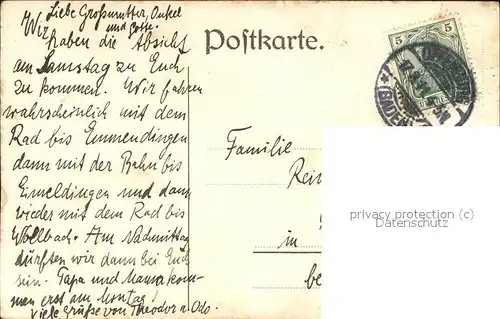 Liebe Großmutter, Onkel
und Gotte.
Wir haben die Absicht
am Samstag zu Euch
zu kommen. Wir fahren
wahrscheinlich mit dem
Rad bis Emmendingen
dann mit der Bahn bis
Eimeldingen und dann
wieder mit dem Rad bis
Wollbach. Am Nachmittag
dürften wir dann bei Euch
sein. Papa und Mama kom-
men erst am Montag!
Viele Grüße von Theodor u. Odo.
Postkarte.
5 5
Familie
Rein
in
be
privacy protection (c)
Datenschutz